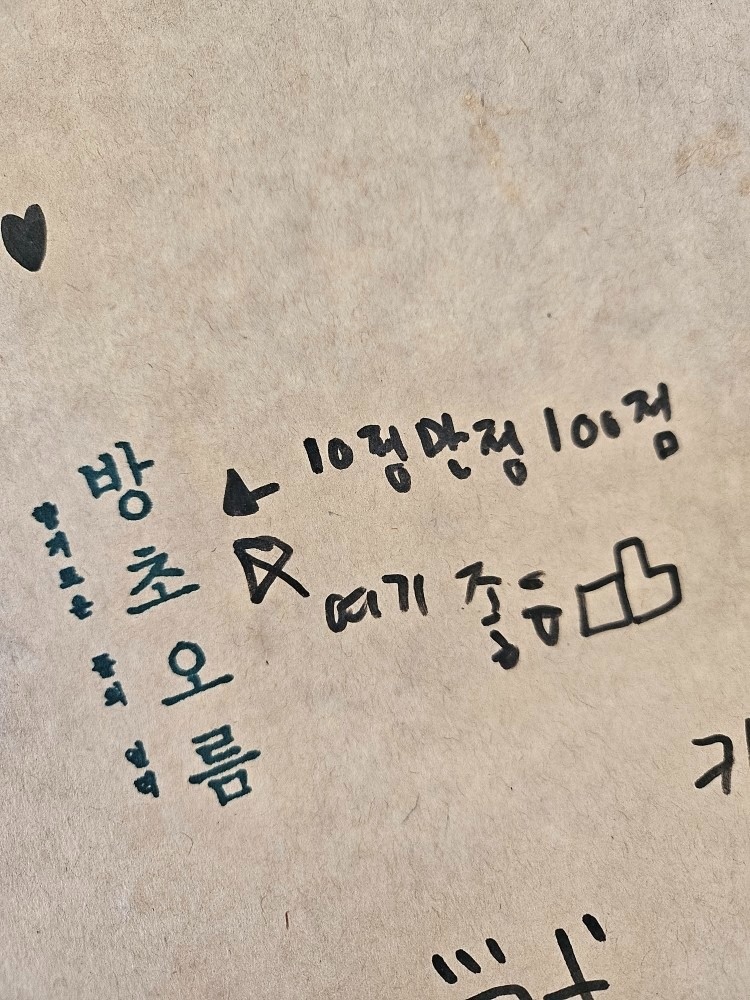 방초오름
향기로운 풀의 언덕
10점 만점 100점
여기 좋음